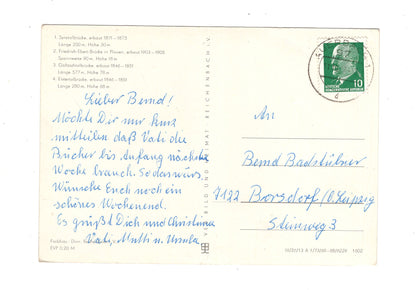 1. Syratalbrücke, erbaut 1871 - 1875
Länge 250 m, Höhe 30 m
2. Friedrich-Ebert-Brücke in Plauen, erbaut 1903 - 1905
Spannweite 90 m, Höhe 18 m
3. Göltzschtalbrücke, erbaut 1846 - 1851
Länge 577 m, Höhe 78 m
4. Elstertalbrücke, erbaut 1846 - 1851
Länge 280 m, Höhe 68 m
Lieber Bernd!
Möchte Dir nur kurz
mitteilen daß Vati die
Bücher bis Anfang nächste
Woche brauch. So das wärs.
Wünsche Euch noch ein
schönes Wochenend.
Es grüßt Dich und Christiana
Vati, Mutti u. Ursula
EVP 0,20 M
BILD UND HEIMAT REICHENBACH i. V.
10
An
Bernd Badstübner
7122 Borsdorf/b. Leipzig
Steinweg 3